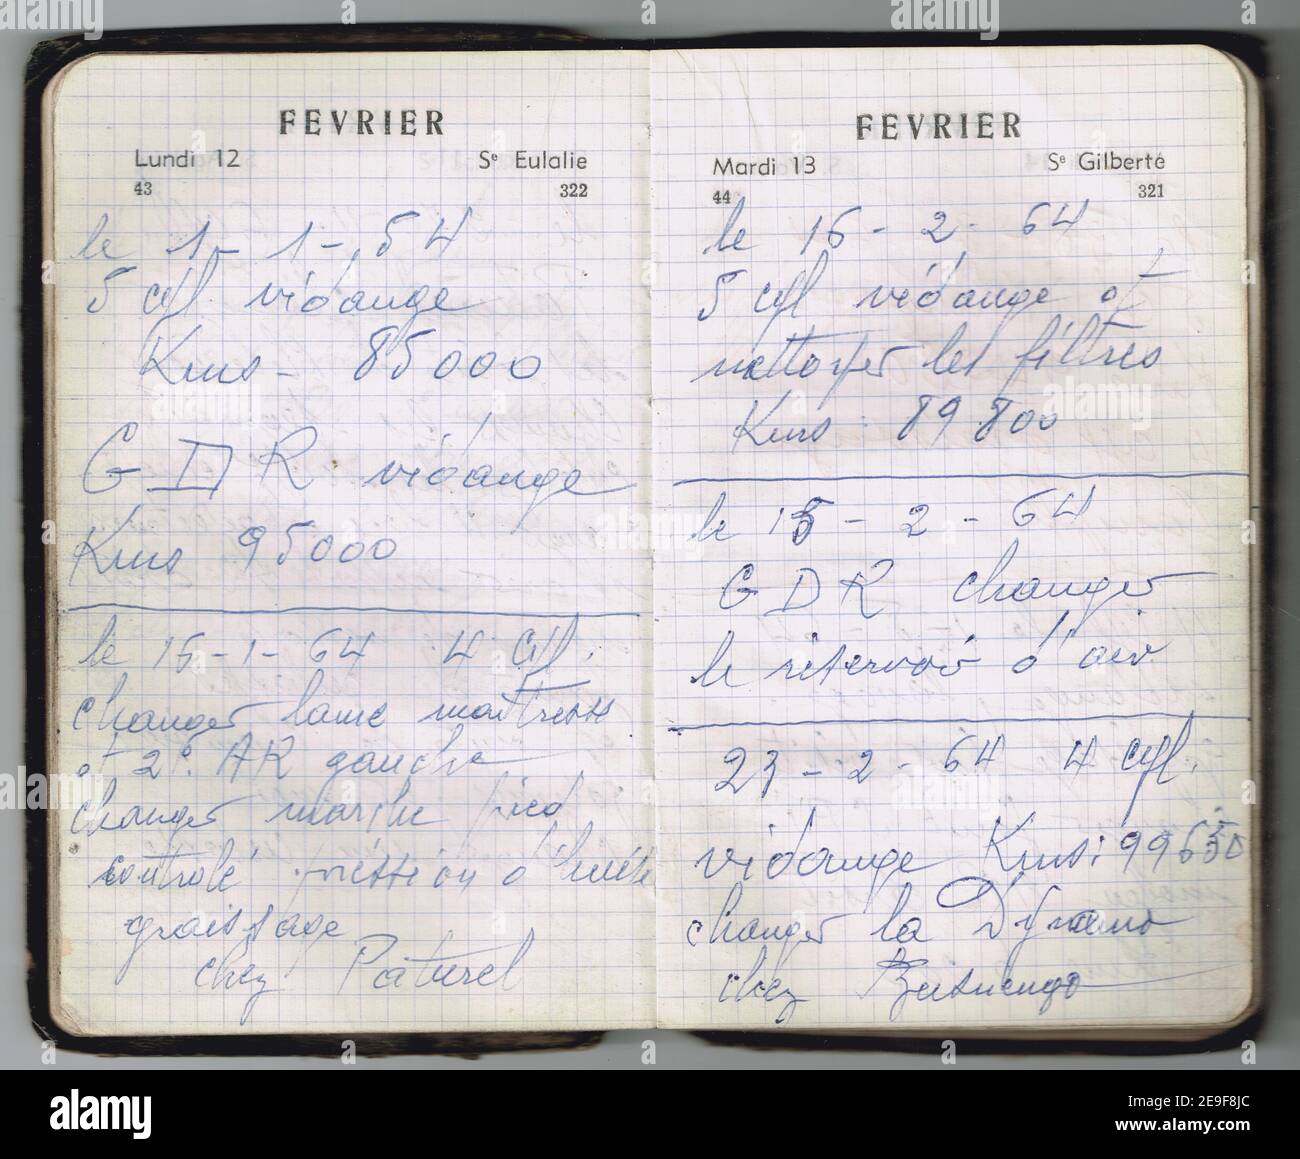 FEVRIER
Lundi 12 Sᵉ Eulalie
43 322
le 1-1-54
5 cyl vidange
Kms - 85000
G D R vidange
Kms 95000
le 15-1-64 4 cyl.
changer lame maîtresse
et 2ᵉ. AR gauche
changer marche pied
controlé pression d'huile
graissage
chez Paturel
FEVRIER
Mardi 13 Sᵉ Gilberte
44 321
le 15-2-64
5 cyl vidange et
nettoyer les filtres
Kms : 89 800
le 15-2-64
G D R changer
le réservoir d'air
23-2-64 4 cyl.
vidange Kms: 99650
changer la Dynamo
chez
alamy
Image ID: 2E9F8JC
www.alamy.com